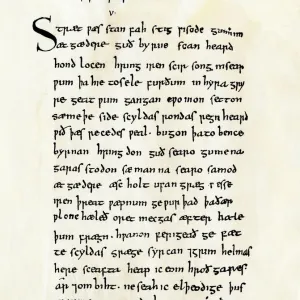 V.
Stræt ƿæs stan fah stig ƿisode gumum
æt gædere guð byrne scan heard
hond locen hring iren scir song in searƿum
þa hie to sele furðum in hyra gryre
geatƿum gangan cƿomon setton
sæmeþe side scyldas rondas regn hearde
ƿið þæs recedes ƿeal. bugon þa to bence
byrnan hring don guð searo gumena
garas stodon sæ manna searo samod
æt gædere æsc holt ufan græg ƿæs se
iren þreat ƿæpnum ge ƿurþad þa ðær
ƿlonc hæleð oret mecgas æfter hæle
þum frægn. hƿanon ferigeað ge fæt
te scyldas græge syrcan ⁊ grim helmas
here sceafta heap ic eom hroð gares
ar ⁊ om biht. ne seah ic elþeodige þus